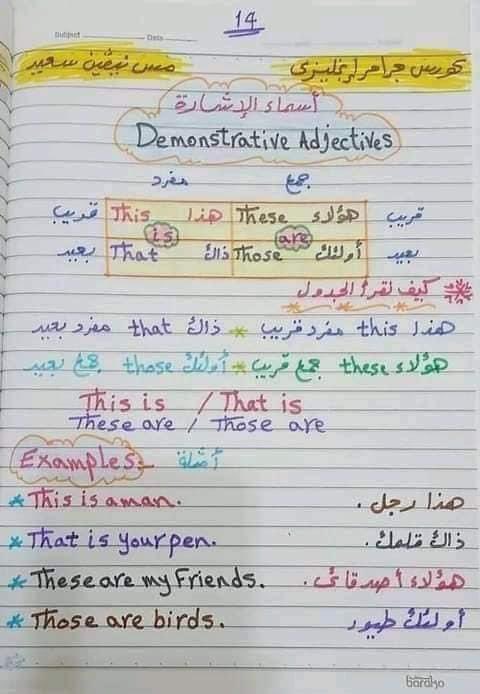 14
Subject Date
كورس جرامر إنجليزى مس نيڤين سعيد
أسماء الإشارة
Demonstrative Adjectives
جمع مفرد
قريب هؤلاء These هذا This قريب
are is
بعيد أولئك Those ذاك That بعيد
كيف نقرأ الجدول
هذا this مفرد قريب * ذاك that مفرد بعيد
هؤلاء these جمع قريب * أولئك those جمع بعيد
This is / That is
These are / Those are
Examples:- أمثلة
* This is a man. هذا رجل.
* That is your pen. ذاك قلمك.
* These are my Friends. هؤلاء أصدقائى.
* Those are birds. أولئك طيور
barako